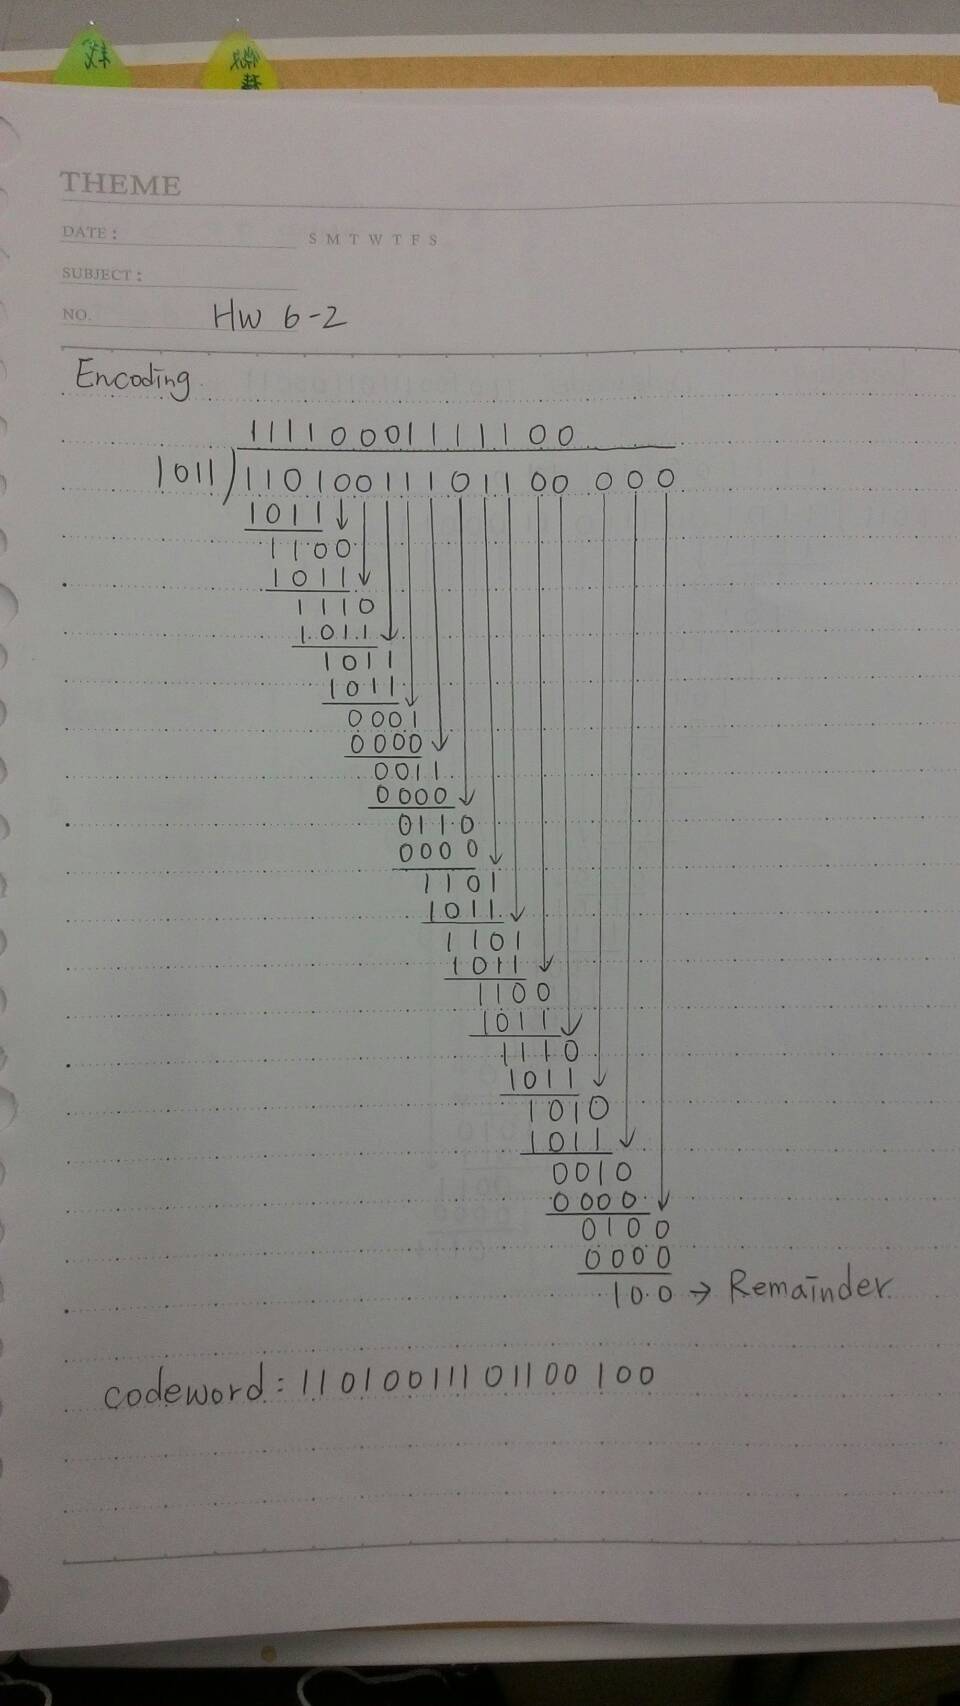 THEME
DATE :
S M T W T F S
SUBJECT :
NO. HW 6-2
Encoding
11110001111100
1011 11010011101100 000
1011
1100
1011
1110
1011
1011
1011
0001
0000
0011
0000
0110
0000
1101
1011
1101
1011
1100
1011
1110
1011
1010
1011
0010
0000
0100
0000
100 → Remainder
codeword : 11010011101100 100